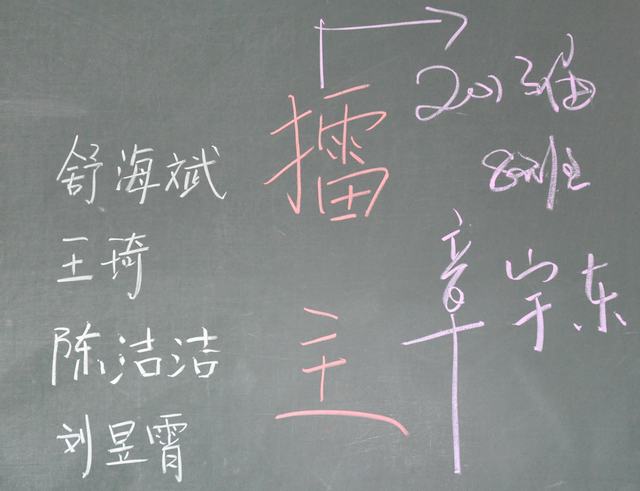 舒海斌
王琦
陈洁洁
刘昱霄
擂主
2013届
8班
章宇东